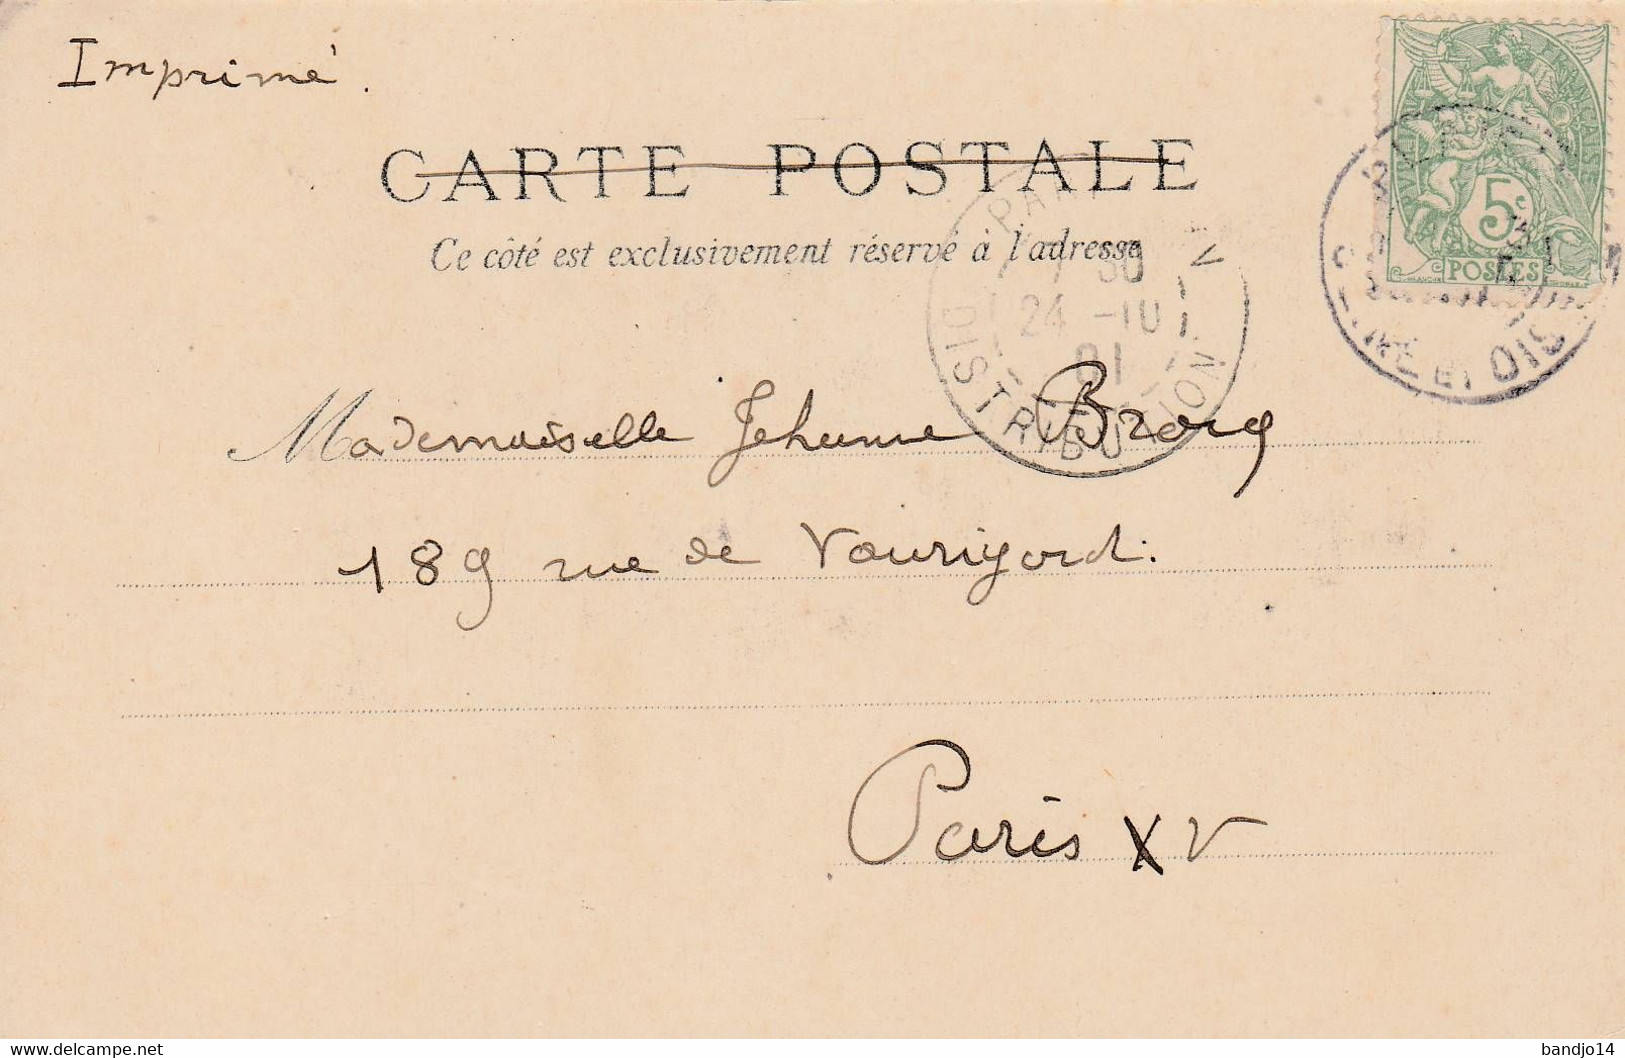 Imprimé.
CARTE POSTALE
Ce côté est exclusivement réservé à l'adresse
RÉPUBLIQUE FRANÇAISE
5c
POSTES
SEINE ET OISE
PARIS XV
7 30
24 -10
01
DISTRIBUTION
Mademoiselle Jehanne
189 rue de Vaurigard.
Paris XV
bandjo14